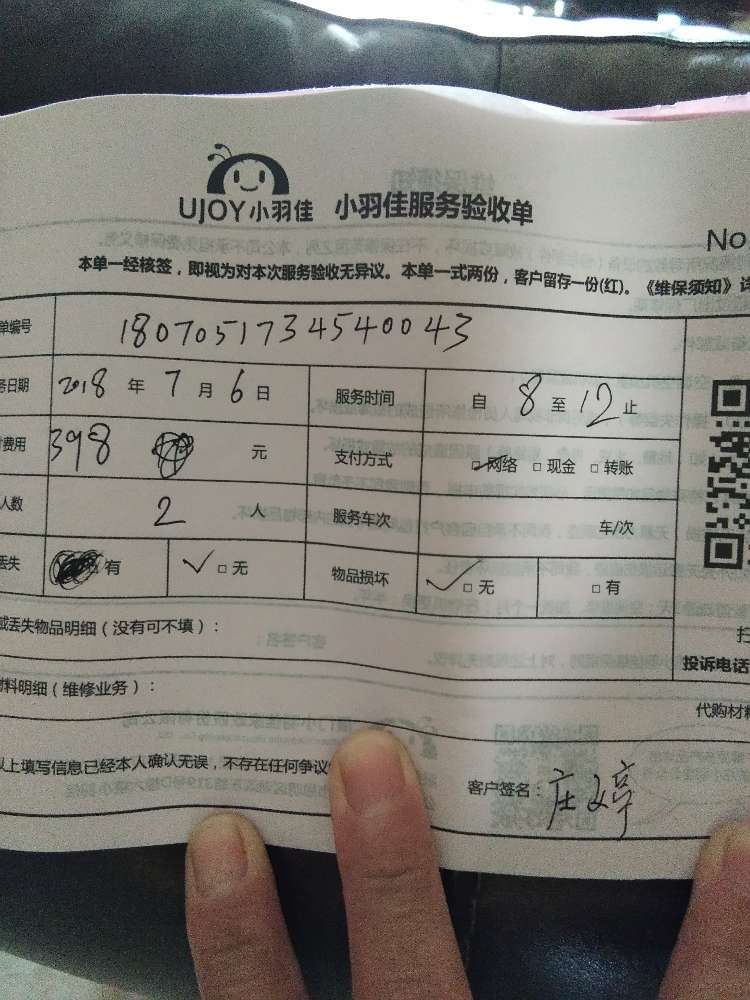 UJOY小羽佳 小羽佳服务验收单
No.
本单一经核签，即视为对本次服务验收无异议。本单一式两份，客户留存一份(红)。《维保须知》详
单编号 180705173454540043
务日期 2018 年 7 月 6 日 服务时间 自 8 至 12 止
费用 398 元 支付方式 □网络 □现金 □转账
人数 2 人 服务车次 车/次
丢失 有 □无 物品损坏 □无 □有
或丢失物品明细（没有可不填）：
扫
投诉电话
材料明细（维修业务）： 代购材料
以上填写信息已经本人确认无误，不存在任何争议 客户签名：庄文婷